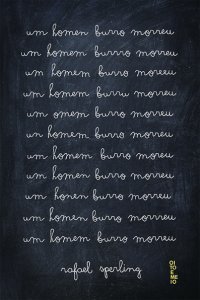 um homen burro morreu
um homem burro morreu
um homem burro morreu
um homem burru morreu
um omem burro morreu
un homem burro morreu
um homem burrro morreu
um homem burro morreu
um honem burro morreu
um homem burro morreu
um homem burro morreu
rafael sperling
OI
TO
E
ME
IO